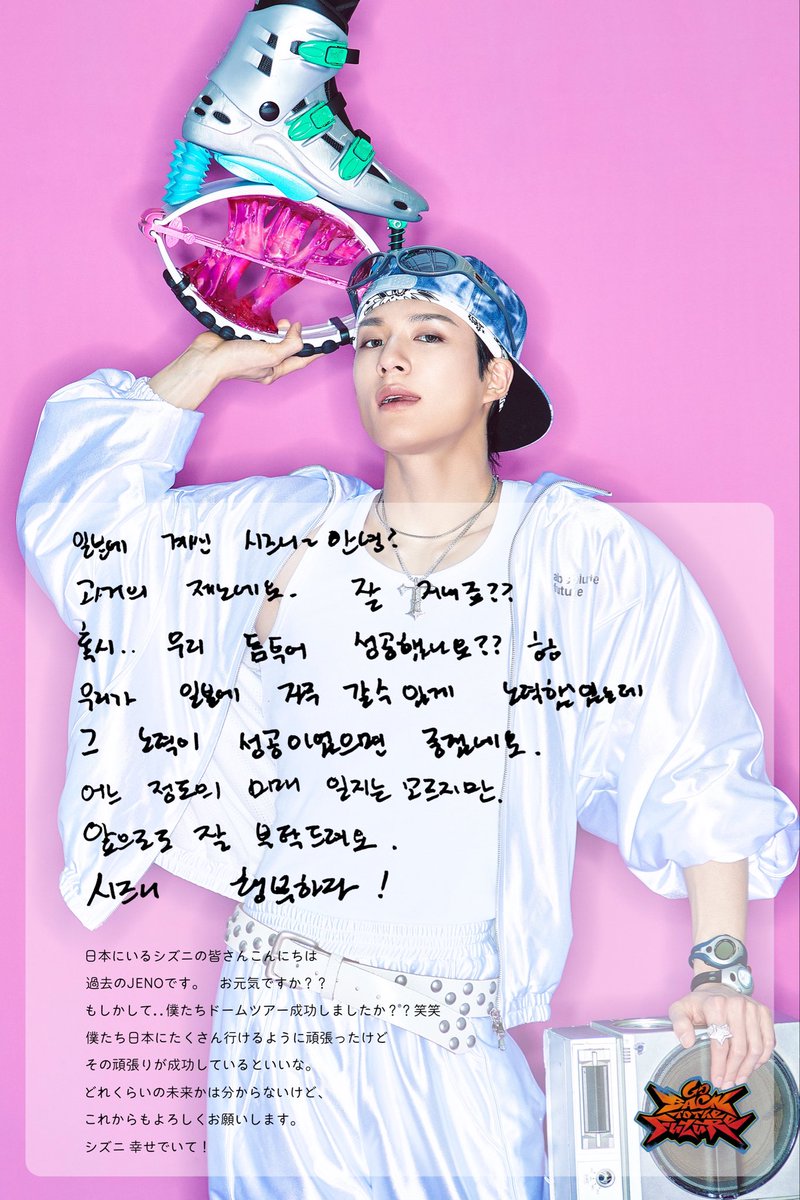 absolute
future
일본에 계신 시즈니~ 안녕?
과거의 제노네요. 잘 지내죠??
혹시.. 우리 돔투어 성공했나요?? ㅎㅎ
우리가 일본에 자주 갈수 있게 노력했었는데
그 노력이 성공이었으면 좋겠네요.
어느 정도의 미래 일지는 모르지만,
앞으로도 잘 부탁드려요.
시즈니 행복하자!
日本にいるシズニの皆さんこんにちは
過去のJENOです。 お元気ですか??
もしかして..僕たちドームツアー成功しましたか??笑笑
僕たち日本にたくさん行けるように頑張ったけど
その頑張りが成功しているといいな。
どれくらいの未来かは分からないけど、
これからもよろしくお願いします。
シズニ 幸せでいて!
GO
BACK
TO THE
FUTURE